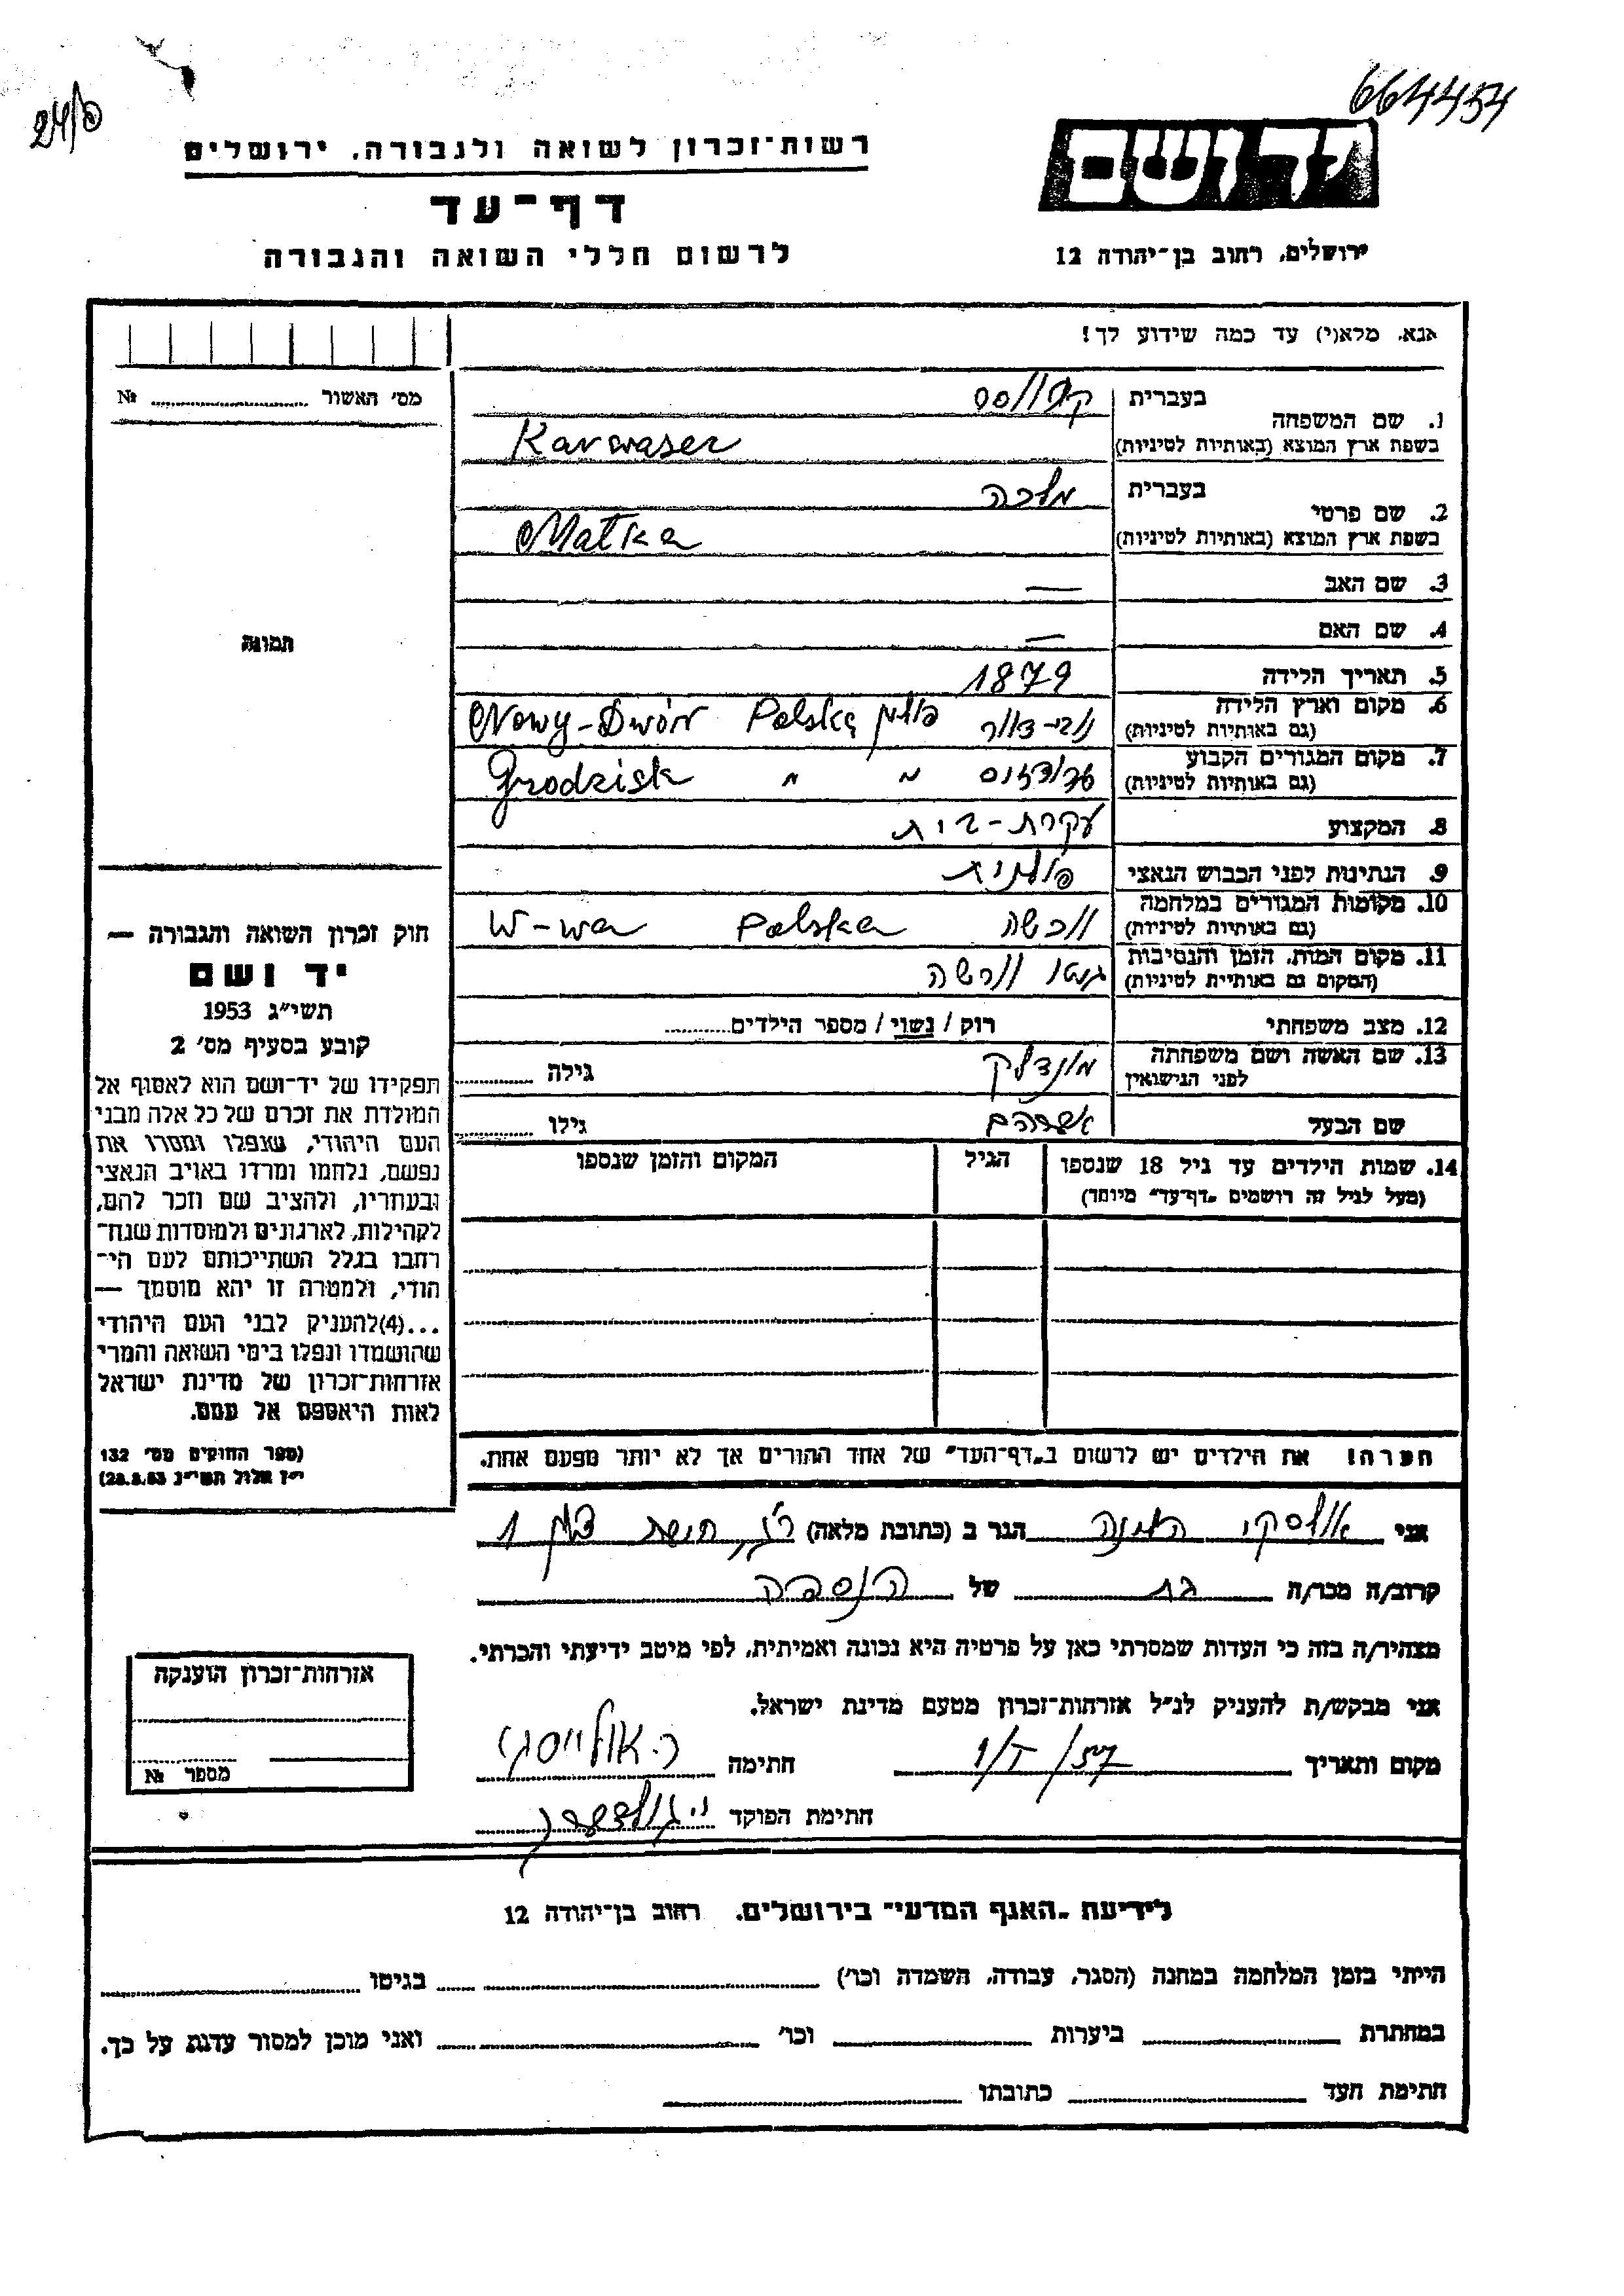 664454
24/6
יד ושם
ירושלים, רחוב בן־יהודה 12
רשות־זכרון לשואה ולגבורה, ירושלים
דף־עד
לרשום חללי השואה והגבורה
אנא, מלא(י) עד כמה שידוע לך!
מס׳ האשור № 
1. שם המשפחה
בעברית
בשפת ארץ המוצא (באותיות לטיניות) Karwaser
2. שם פרטי
בעברית מלכה
בשפת ארץ המוצא (באותיות לטיניות) Malka
3. שם האב —
4. שם האם —
5. תאריך הלידה 1879
6. מקום וארץ הלידה
(גם באותיות לטיניות) נובי-דוור פולין Polska Nowy-Dwór
7. מקום המגורים הקבוע
(גם באותיות לטיניות) " " Grodzisk
8. המקצוע עקרת-בית
9. הנתינות לפני הכבוש הנאצי פולנית
10. מקומות המגורים במלחמה
(גם באותיות לטיניות) וורשה Polska W-wa
11. מקום המות, הזמן והנסיבות
(המקום גם באותיות לטיניות) גטו וורשה
12. מצב משפחתי רוק / נשוי / מספר הילדים
13. שם האשה ושם משפחתה
לפני הנישואין מונדלק גילה
שם הבעל אברהם גילו
14. שמות הילדים עד גיל 18 שנספו
(מעל לגיל זה רושמים „דף־עד" מיוחד)
הגיל
המקום והזמן שנספו
הערה! את הילדים יש לרשום ב„דף־העד" של אחד ההורים אך לא יותר מפעם אחת.
תמונה
חוק זכרון השואה והגבורה —
יד ושם
תשי"ג 1953
קובע בסעיף מס׳ 2
תפקידו של יד־ושם הוא לאסוף אל
המולדת את זכרם של כל אלה מבני
העם היהודי, שנפלו ומסרו את
נפשם, נלחמו ומרדו באויב הנאצי
ובעוזריו, ולהציב שם וזכר להם,
לקהילות, לארגונים ולמוסדות שנח־
רבו בגלל השתייכותם לעם הי־
הודי, ולמטרה זו יהא מוסמך —
...(4)להעניק לבני העם היהודי
שהושמדו ונפלו בימי השואה והמרי
אזרחות־זכרון של מדינת ישראל
לאות היאספם אל עמם.
(ספר החוקים מס׳ 132
י"ז אלול תשי"ג 28.8.53)
אני אולסקי הגר ב (כתובת מלאה) 1
קרוב/ה מכר/ה בת של הנספה
מצהיר/ה בזה כי העדות שמסרתי כאן על פרטיה היא נכונה ואמיתית, לפי מיטב ידיעתי והכרתי.
אני מבקש/ת להעניק לנ"ל אזרחות־זכרון מטעם מדינת ישראל.
מקום ותאריך 1/I/57 חתימה
חתימת הפוקד
אזרחות־זכרון הוענקה
מספר №
לידיעת „האגף המדעי" בירושלים, רחוב בן־יהודה 12
הייתי בזמן המלחמה במחנה (הסגר, עבודה, השמדה וכו׳) בגיטו
במחתרת ביערות וכו׳ ואני מוכן למסור עדות על כך.
חתימת העד כתובתו